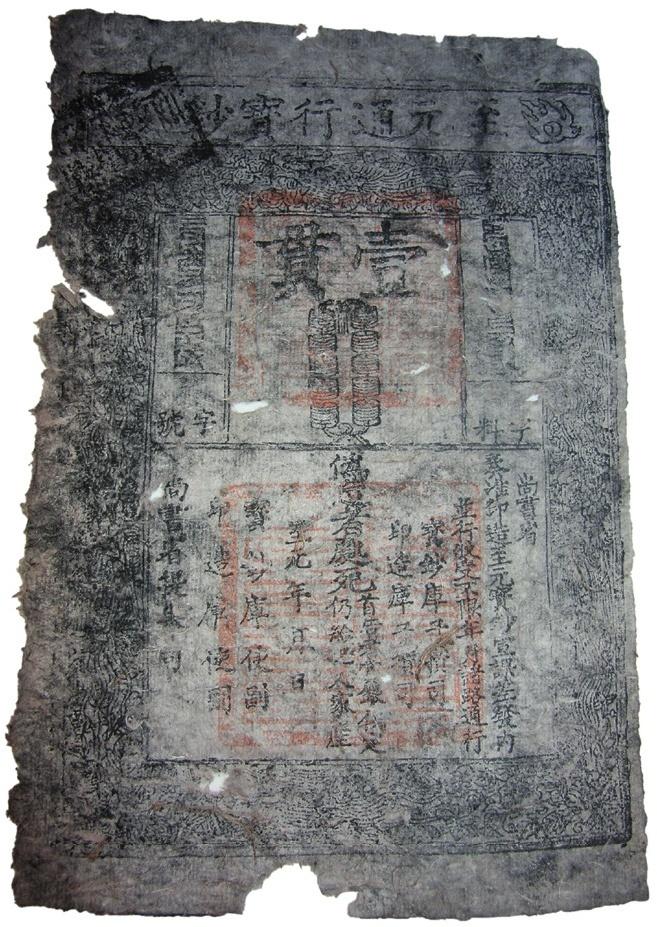 至元通行寶鈔
壹貫
字料
字號
尚書省
奏准印造至元寶鈔宣課差發內
並行收受不限年月諸路通行
寶鈔庫子攢司
印造庫子攢司
偽造者處死
首告者賞銀伍定
仍給犯人家產
至元年月日
寶鈔庫使副
印造庫使副
尚書省提舉司